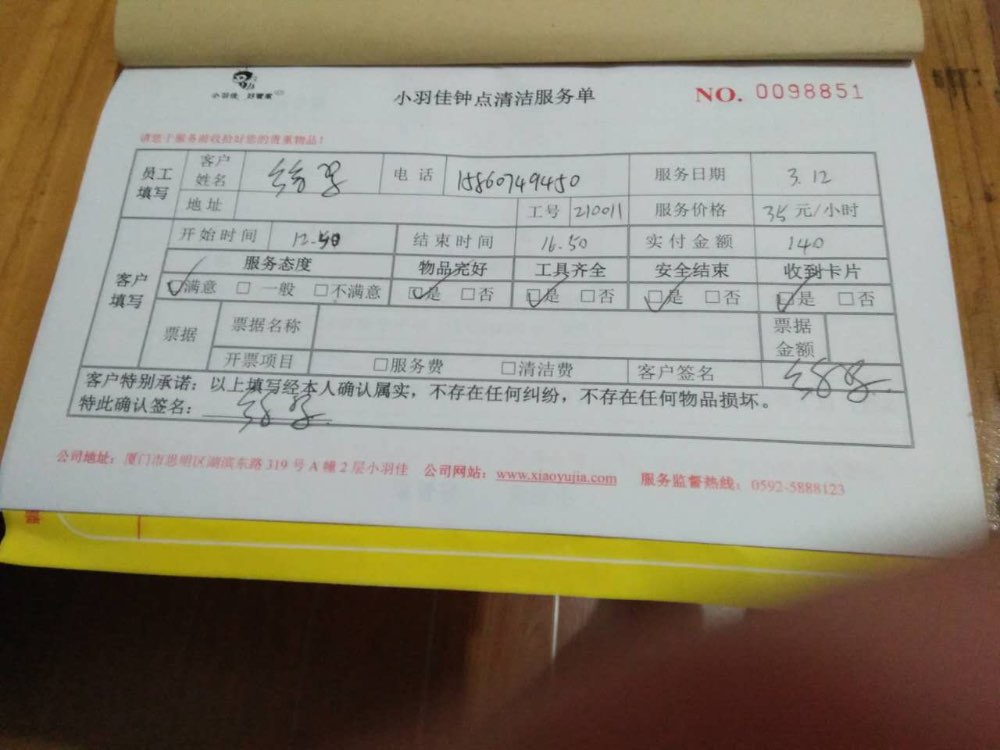 小羽佳 好管家
小羽佳钟点清洁服务单
NO. 0098851
请您于服务前收拾好您的贵重物品!
员工填写 客户姓名 电话 15860749450 服务日期 3.12
地址 工号 210011 服务价格 35 元/小时
客户填写 开始时间 12.50 结束时间 16.50 实付金额 140
服务态度 物品完好 工具齐全 安全结束 收到卡片
☑满意 □一般 □不满意 ☑是 □否 ☑是 □否 ☑是 □否 ☑是 □否
票据 票据名称 票据金额
开票项目 □服务费 □清洁费 客户签名
客户特别承诺:以上填写经本人确认属实,不存在任何纠纷,不存在任何物品损坏。
特此确认签名:
公司地址:厦门市思明区湖滨东路 319 号 A 幢 2 层小羽佳 公司网站:www.xiaoyujia.com 服务监督热线:0592-5888123